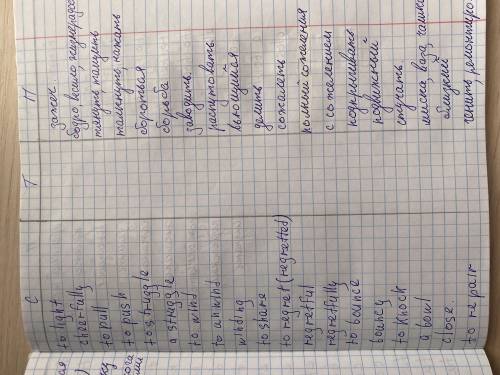 С Т П
to light зажеч
cheerfully бодро весело
to pull тянуть тащить
to push толкнуть, нажать
to struggle бороться
a struggle борьба
to wind заводить
to unwind распутовать
winding вьющийся
to share делить
to regret (regretted) сожалеть
regretful полный сожаления
regretfully с сожалением
to bounce подпрыгивать
bouncy подвижный
to knock стучать
a bowl миска, ваза, чашка
close. близкий
to repair чинить, ремонтиро